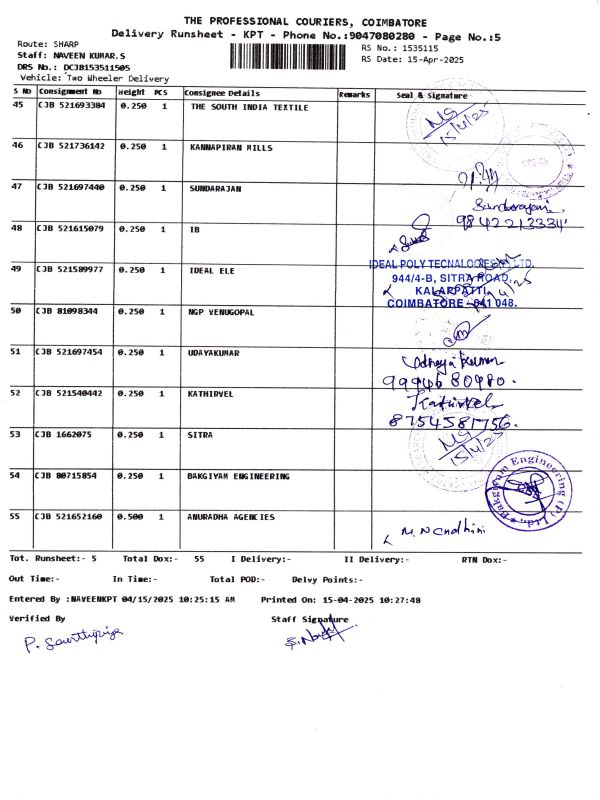 THE PROFESSIONAL COURIERS, COIMBATORE
Delivery Runsheet - KPT - Phone No.:9047080280 - Page No.:5
Route: SHARP
Staff: NAVEEN KUMAR.S
DRS No.: DCJB153511505
Vehicle: Two Wheeler Delivery
RS No.: 1535115
RS Date: 15-Apr-2025
S No Consignment No Weight PCS Consignee Details Remarks Seal & Signature
45 CJB 521693384 0.250 1 THE SOUTH INDIA TEXTILE
NS
15/4/25
46 CJB 521736142 0.250 1 KANNAPIRAN MILLS
47 CJB 521697440 0.250 1 SUNDARAJAN
Sundarajan
9842213334
48 CJB 521615079 0.250 1 IB
49 CJB 521589977 0.250 1 IDEAL ELE
IDEAL POLY TECNALOGIES LTD.
944/4-B, SITRA ROAD,
KALAPATTI,
COIMBATORE - 641 048.
50 CJB 81098344 0.250 1 NGP VENUGOPAL
51 CJB 521697454 0.250 1 UDAYAKUMAR
Udhayakumar
9994680980.
52 CJB 521540442 0.250 1 KATHIRVEL
Kathirvel
8754581756.
53 CJB 1662075 0.250 1 SITRA
NS
15/4/25
54 CJB 80715854 0.250 1 BAKGIYAM ENGINEERING
Bakgiyam Engineering (P) Ltd.,
55 CJB 521652160 0.500 1 ANURADHA AGENCIES
M. Nandhini
Tot. Runsheet:- 5 Total Dox:- 55 I Delivery:- II Delivery:- RTN Dox:-
Out Time:- In Time:- Total POD:- Delvy Points:-
Entered By :NAVEENKPT 04/15/2025 10:25:15 AM Printed On: 15-04-2025 10:27:48
Verified By Staff Signature